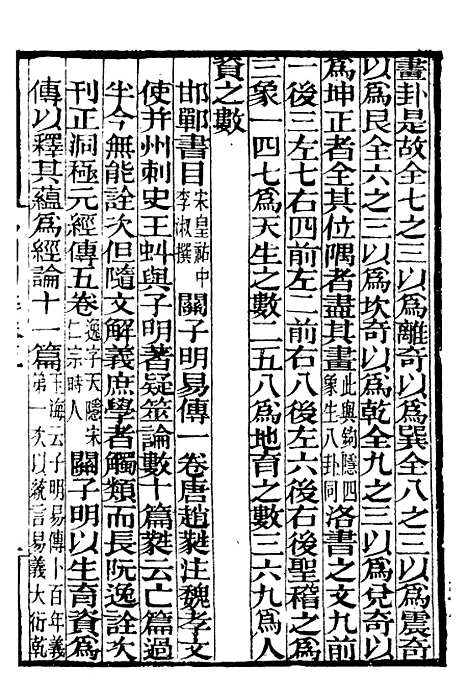 畫卦是故全七之三以爲離奇以爲巽全八之三以爲震奇
以爲艮全六之三以爲坎奇以爲乾全九之三以爲兌奇以
爲坤正者全其位隅者盡其畫此與鉤隱四象生八卦同洛書之文九前
一後三左七右四前左二前右八後左六後右後聖稽之以爲
三象一四七爲天生之數二五八爲地育之數三六九爲人
資之數
邯鄲書目宋皇祐中李淑撰關子明易傳一卷唐趙蕤注魏孝文
使并州刺史王虯與子明著疑筮論數十篇蕤云亡篇過
半今無能詮次但隨文解義庶學者觸類而長阮逸詮次
刊正洞極元經傳五卷逸字天隱宋仁宗時人關子明以生育資爲
傳以釋其蘊爲經論十一篇玉海云子明易傳卜百年義第一次以統言易義大衍乾